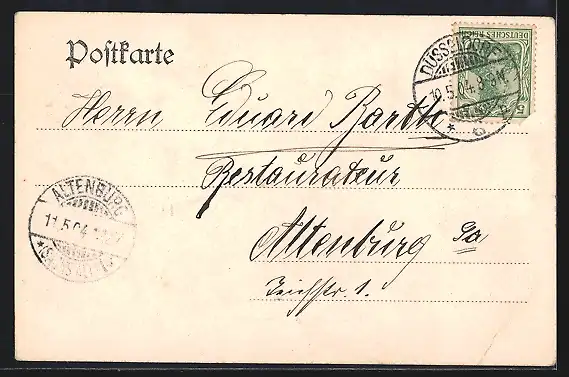 Postkarte
DÜSSELDORF
10.5.04.
DEUTSCHES REICH
5
Herrn Eduard Barth
Restaurateur
Altenburg Sa
Teichstr. 1.
ALTENBURG
11.5.04.